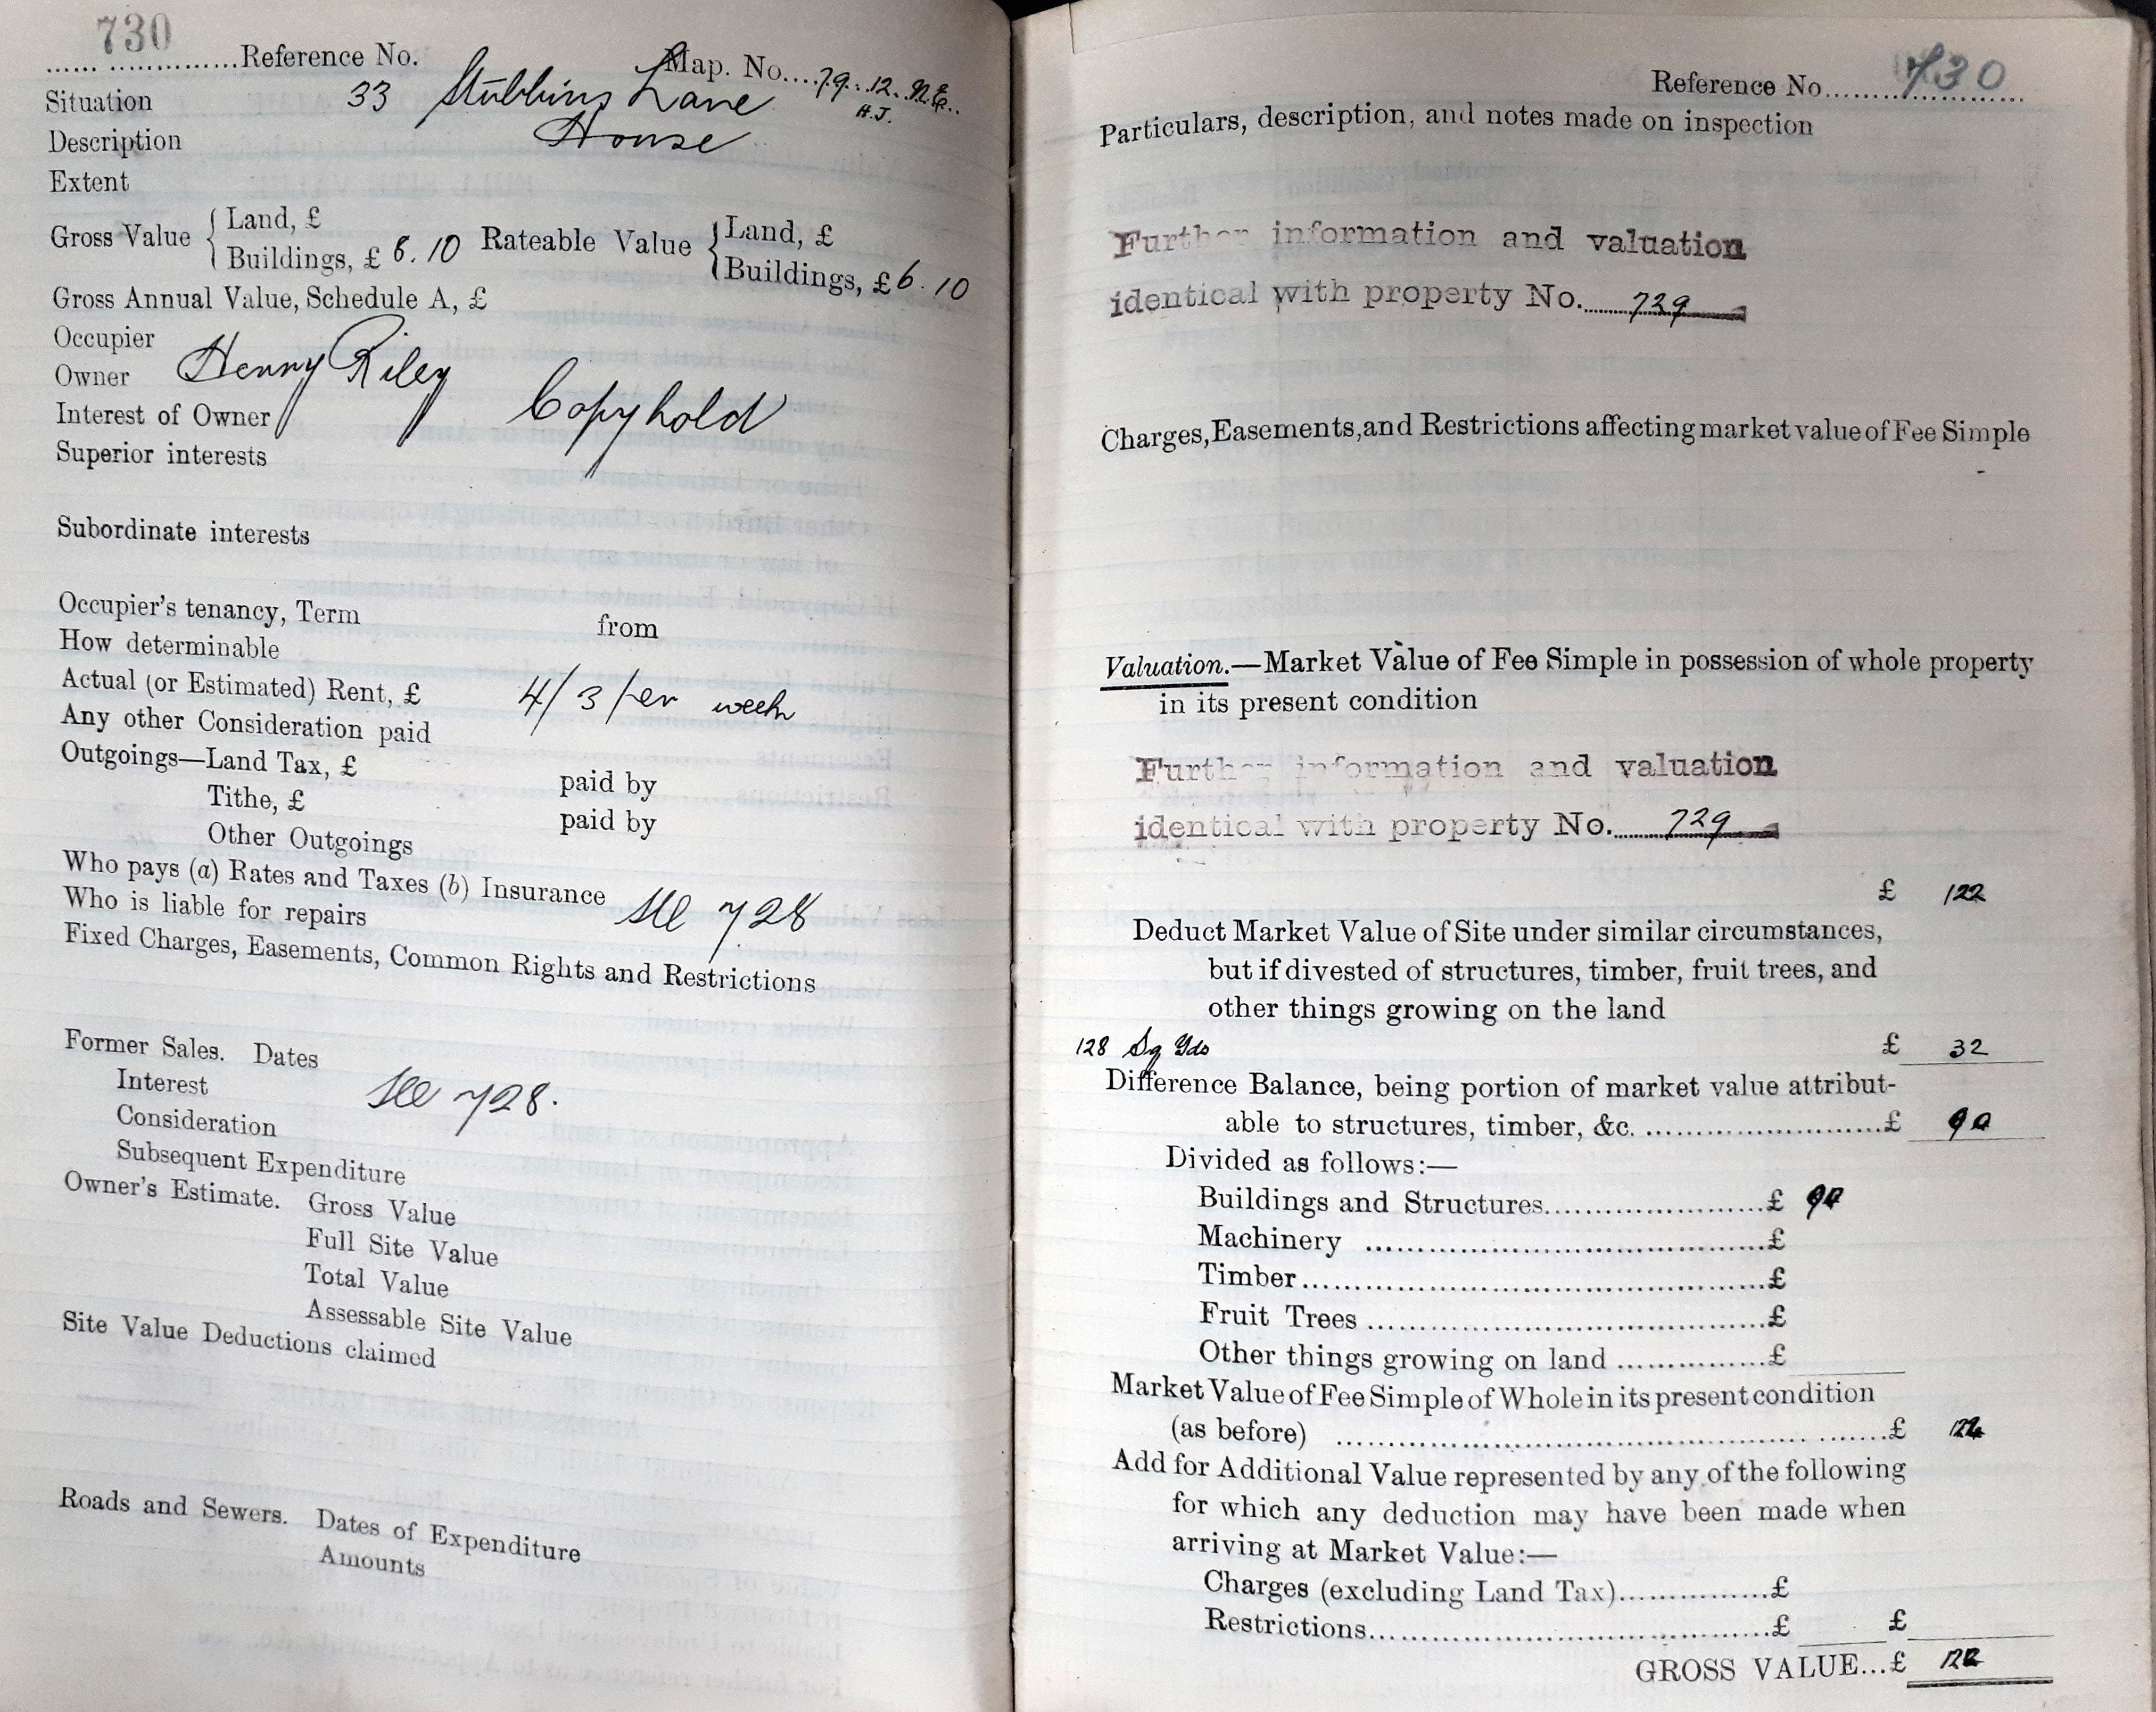 730
Reference No. Map. No....79..12..N.E..
H.J.
Situation 33 Stubbins Lane
Description House
Extent
Gross Value { Land, £ Rateable Value { Land, £
Buildings, £ 8.10 Buildings, £ 6.10
Gross Annual Value, Schedule A, £
Occupier
Owner Henry Riley
Interest of Owner Copyhold
Superior interests
Subordinate interests
Occupier's tenancy, Term from
How determinable
Actual (or Estimated) Rent, £ 4/3 per week
Any other Consideration paid
Outgoings—Land Tax, £ paid by
Tithe, £ paid by
Other Outgoings
Who pays (a) Rates and Taxes (b) Insurance
Who is liable for repairs See 728
Fixed Charges, Easements, Common Rights and Restrictions
Former Sales. Dates
Interest See 728.
Consideration
Subsequent Expenditure
Owner's Estimate. Gross Value
Full Site Value
Total Value
Assessable Site Value
Site Value Deductions claimed
Roads and Sewers. Dates of Expenditure
Amounts
Reference No. 730
Particulars, description, and notes made on inspection
Further information and valuation
identical with property No. 729
Charges, Easements, and Restrictions affecting market value of Fee Simple
Valuation.—Market Value of Fee Simple in possession of whole property
in its present condition
Further information and valuation
identical with property No. 729
£ 122
Deduct Market Value of Site under similar circumstances,
but if divested of structures, timber, fruit trees, and
other things growing on the land
128 Sq Yds £ 32
Difference Balance, being portion of market value attribut-
able to structures, timber, &c. £ 90
Divided as follows:—
Buildings and Structures £ 90
Machinery £
Timber £
Fruit Trees £
Other things growing on land £
Market Value of Fee Simple of Whole in its present condition
(as before) £ 122
Add for Additional Value represented by any of the following
for which any deduction may have been made when
arriving at Market Value:—
Charges (excluding Land Tax) £
Restrictions £ £
GROSS VALUE...£ 122